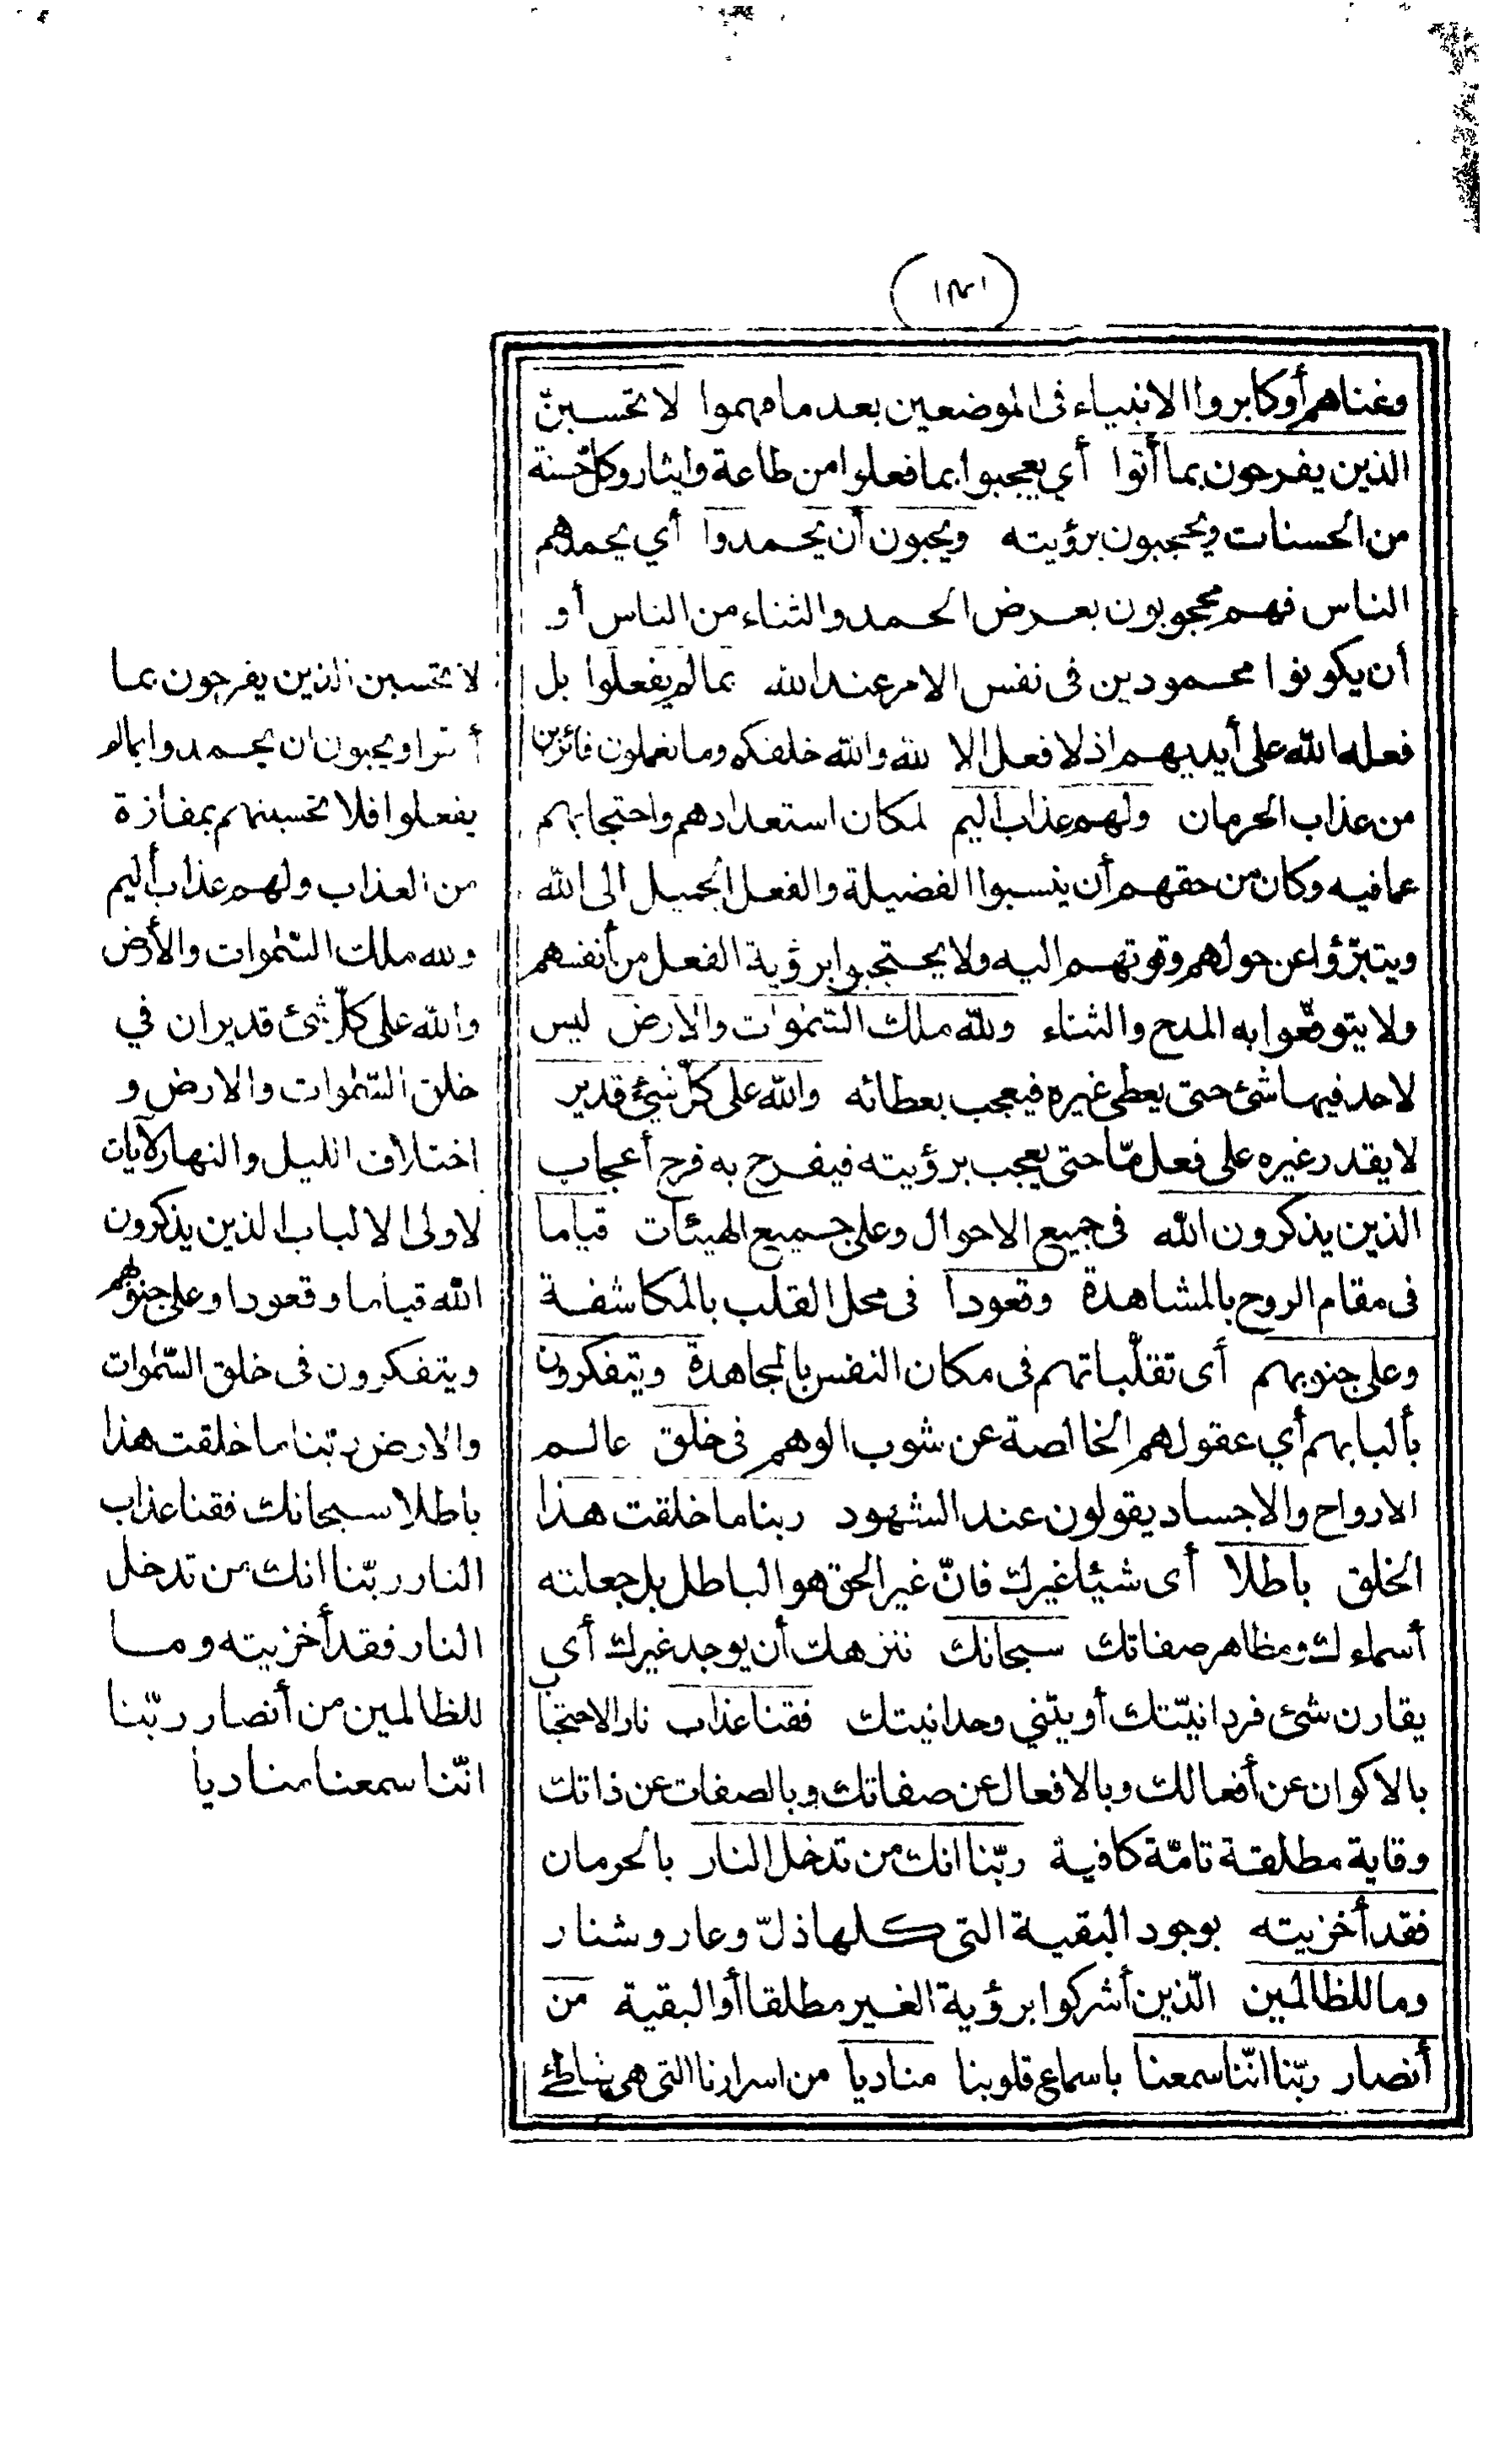 وغناهم أوكابروا الانبياء فى الموضعين بعد مافهموا لا تحسبنّ
الذين يفرحون بما أتوا أي يعجبوا بما فعلوا من طاعة وايثار وكلّ حسنة
من الحسنات ويحجبون برؤيته ويحبون أن يحمدوا أي يحمدهم
الناس فهم محجوبون بعرض الحمد والثناء من الناس أو
أن يكونوا محمودين فى نفس الامر عند الله بما لم يفعلوا بل
فعله الله على أيديهم اذ لا فعل الا لله والله خلقكم وما تعملون فائزين
من عذاب الحرمان ولهم عذاب أليم لمكان استعدادهم واحتجابهم
عما فيه وكان من حقهم أن ينسبوا الفضيلة والفعل الجميل الى الله
ويتبرّؤا عن حولهم وقوتهم اليه ولا يحتجبوا برؤية الفعل من أنفسهم
ولا يتوقّعوا به المدح والثناء ولله ملك السّموات والارض ليس
لاحد فيها شئ حتى يعطى غيره فيعجب بعطائه والله على كلّ شئ قدير
لا يقدر غيره على فعل مّا حتى يعجب برؤيته فيفرح به فرح أعجاب
الذين يذكرون الله فى جميع الاحوال وعلى جميع الهيئات قياما
فى مقام الروح بالمشاهدة وقعودا فى محل القلب بالمكاشفة
وعلى جنوبهم أى تقلّباتهم فى مكان النفس بالمجاهدة ويتفكرون
بألبابهم أي عقولهم الخالصة عن شوب الوهم فى خلق عالم
الارواح والاجساد يقولون عند الشهود ربنا ما خلقت هذا
الخلق باطلا أى شيئا غيرك فانّ غير الحق هو الباطل بل جعلته
أسماءك ومظاهر صفاتك سبحانك ننزهك أن يوجد غيرك أي
يقارن شئ فردانيّتك أو يثني وحدانيتك فقنا عذاب نار الاحتجاب
بالاكوان عن أفعالك وبالافعال عن صفاتك وبالصفات عن ذاتك
وقاية مطلقة تامّة كافية ربّنا انك من تدخل النار بالحرمان
فقد أخزيته بوجود البقية التى كلها ذلّ وعار وشنار
وما للظالمين الّذين أشركوا برؤية الغير مطلقا أو البقية من
أنصار ربّنا انّنا سمعنا باسماع قلوبنا مناديا من اسرارنا التى هى شاطئ
لا تحسبن الذين يفرحون بما
أتوا ويحبون ان يحمدوا بما لم
يفعلوا فلا تحسبنهم بمفازة
من العذاب ولهم عذاب أليم
ولله ملك السّموات والأرض
والله على كلّ شئ قدير ان في
خلق السّموات والارض و
اختلاف الليل والنهار لآيات
لاولى الالباب الذين يذكرون
الله قياما وقعودا وعلى جنوبهم
ويتفكرون فى خلق السّموات
والارض ربّنا ما خلقت هذا
باطلا سبحانك فقنا عذاب
النار ربّنا انك من تدخل
النار فقد أخزيته وما
للظالمين من أنصار ربّنا
انّنا سمعنا مناديا